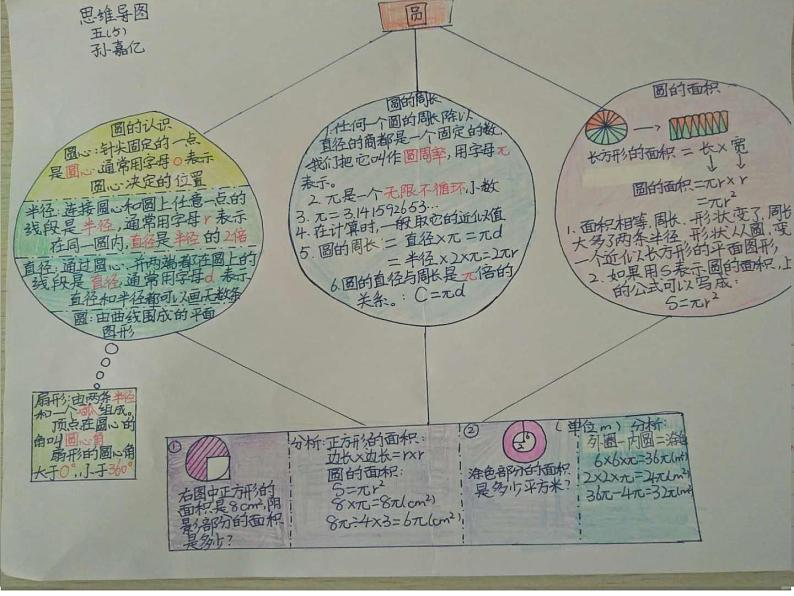 思维导图
五(5)
孙嘉亿
圆
圆的认识
圆心:针尖固定的一点
是圆心.通常用字母o表示
圆心决定的位置
半径:连接圆心和圆上任意一点的
线段是半径,通常用字母r表示
在同一圆内,直径是半径的2倍
直径:通过圆心,并两端都在圆上的
线段是直径,通常用字母d表示
直径和半径都可以画无数条
圆:由曲线围成的平面
图形
扇形:由两条半径
和一个弧组成。
顶点在圆心的
角叫圆心角
扇形的圆心角
大于0°,小于360°
圆的周长
1.任何一个圆的周长除以
直径的商都是一个固定的数,
我们把它叫作圆周率,用字母π
表示。
2.π是一个无限不循环小数
3.π=3.141592653…
4.在计算时,一般取它的近似值
5.圆的周长=直径×π=πd
=半径×2×π=2πr
6.圆的直径与周长是π倍的
关系。:C=πd
圆的面积
长方形的面积=长×宽
圆的面积=πr×r
=πr²
1.面积相等,周长、形状变了,周长
大多了两条半径,形状从圆,变
一个近似长方形的平面图形,
2.如果用S表示圆的面积,上
的公式可以写成:
S=πr²
①
右图中正方形的
面积是8cm²,阴
影部分的面积
是多少?
分析:正方形的面积:
边长×边长=r×r
圆的面积:
S=πr²
8×π=8π(cm²)
8π÷4×3=6π(cm²)
②
2
6
(单位m)
涂色部分的面积
是多少平方米?
分析:
外圆-内圆=涂色
6×6×π=36π(m²)
2×2×π=4π(m²)
36π-4π=32π(m²)